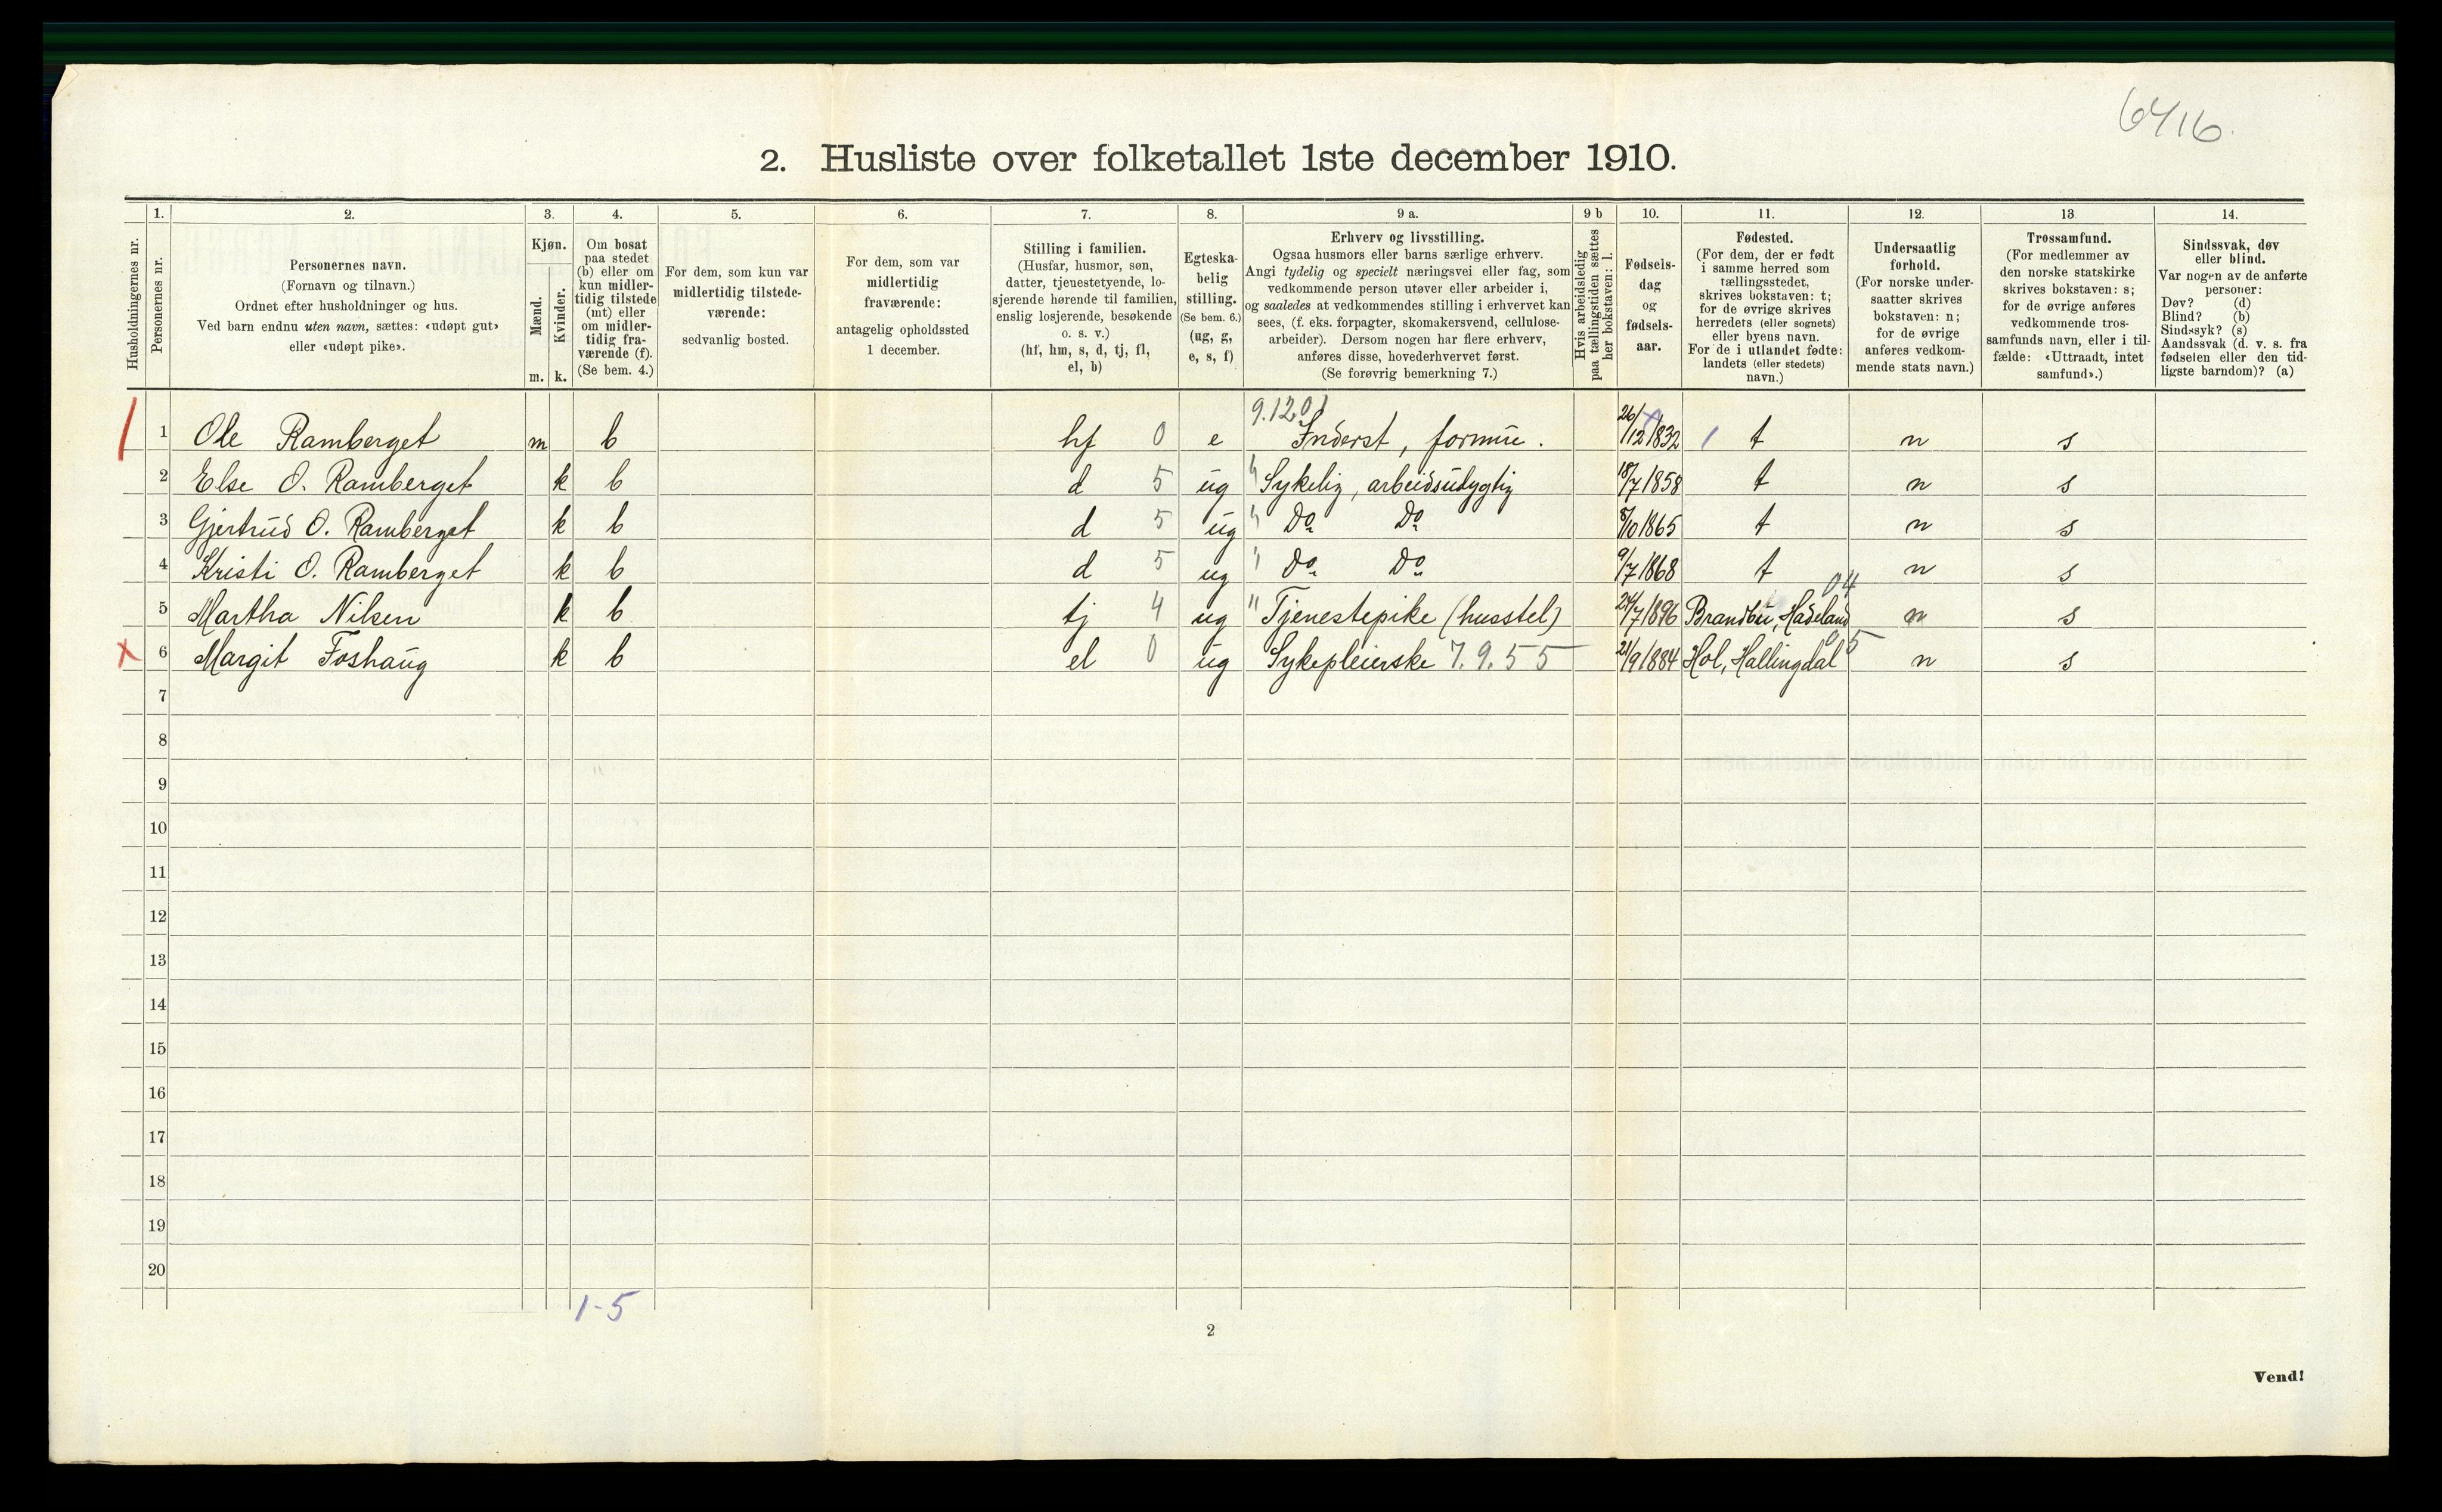 6416.
2. Husliste over folketallet 1ste december 1910.
Husholdningernes nr.
1.
Personernes nr.
2.
Personernes navn.
(Fornavn og tilnavn.)
Ordnet efter husholdninger og hus.
Ved barn endnu uten navn, sættes: «udøpt gut»
eller «udøpt pike».
3.
Kjøn.
Mænd.
Kvinder.
m. k.
4.
Om bosat
paa stedet
(b) eller om
kun midler-
tidig tilstede
(mt) eller
om midler-
tidig fra-
værende (f).
(Se bem. 4.)
5.
For dem, som kun var
midlertidig tilstede-
værende:
sedvanlig bosted.
6.
For dem, som var
midlertidig
fraværende:
antagelig opholdssted
1 december.
7.
Stilling i familien.
(Husfar, husmor, søn,
datter, tjenestetyende, lo-
sjerende hørende til familien,
enslig losjerende, besøkende
o. s. v.)
(hf, hm, s, d, tj, fl,
el, b)
8.
Egteska-
belig
stilling.
(Se bem. 6.)
(ug, g,
e, s, f)
9 a.
Erhverv og livsstilling.
Ogsaa husmors eller barns særlige erhverv.
Angi tydelig og specielt næringsvei eller fag, som
vedkommende person utøver eller arbeider i,
og saaledes at vedkommendes stilling i erhvervet kan
sees, (f. eks. forpagter, skomakersvend, cellulose-
arbeider). Dersom nogen har flere erhverv,
anføres disse, hovederhvervet først.
(Se forøvrig bemerkning 7.)
9 b
Hvis arbeidsledig
paa tællingstiden sættes
her bokstaven: l.
10.
Fødsels-
dag
og
fødsels-
aar.
11.
Fødested.
(For dem, der er født
i samme herred som
tællingsstedet,
skrives bokstaven: t;
for de øvrige skrives
herredets (eller sognets)
eller byens navn.
For de i utlandet fødte:
landets (eller stedets)
navn.)
12.
Undersaatlig
forhold.
(For norske under-
saatter skrives
bokstaven: n;
for de øvrige
anføres vedkom-
mende stats navn.)
13
Trossamfund.
(For medlemmer av
den norske statskirke
skrives bokstaven: s;
for de øvrige anføres
vedkommende tros-
samfunds navn, eller i til-
fælde: «Uttraadt, intet
samfund».)
14.
Sindssvak, døv
eller blind.
Var nogen av de anførte
personer:
Døv? (d)
Blind? (b)
Sindssyk? (s)
Aandssvak (d. v. s. fra
fødselen eller den tid-
ligste barndom)? (a)
9.12.01
1 Ole Ramberget m b hf 0 e Inderst, formue. 26/12 1832 t n s
2 Else O. Ramberget k b d 5 ug " Sykelig, arbeidsudygtig 18/7 1858 t n s
3 Gjertrud O. Ramberget k b d 5 ug " Do Do 8/10 1865 t n s
4 Kristi O. Ramberget k b d 5 ug " Do Do 9/7 1868 t n s
04
5 Martha Nilsen k b tj 4 ug " Tjenestepike (husstel) 24/7 1896 Brandbu, Hadeland n s
05
6 Margit Foshaug k b el 0 ug Sykepleierske 7.9.55 21/9 1884 Hol, Hallingdal n s
7
8
9
10
11
12
13
14
15
16
17
18
19
20
1-5
2
Vend!